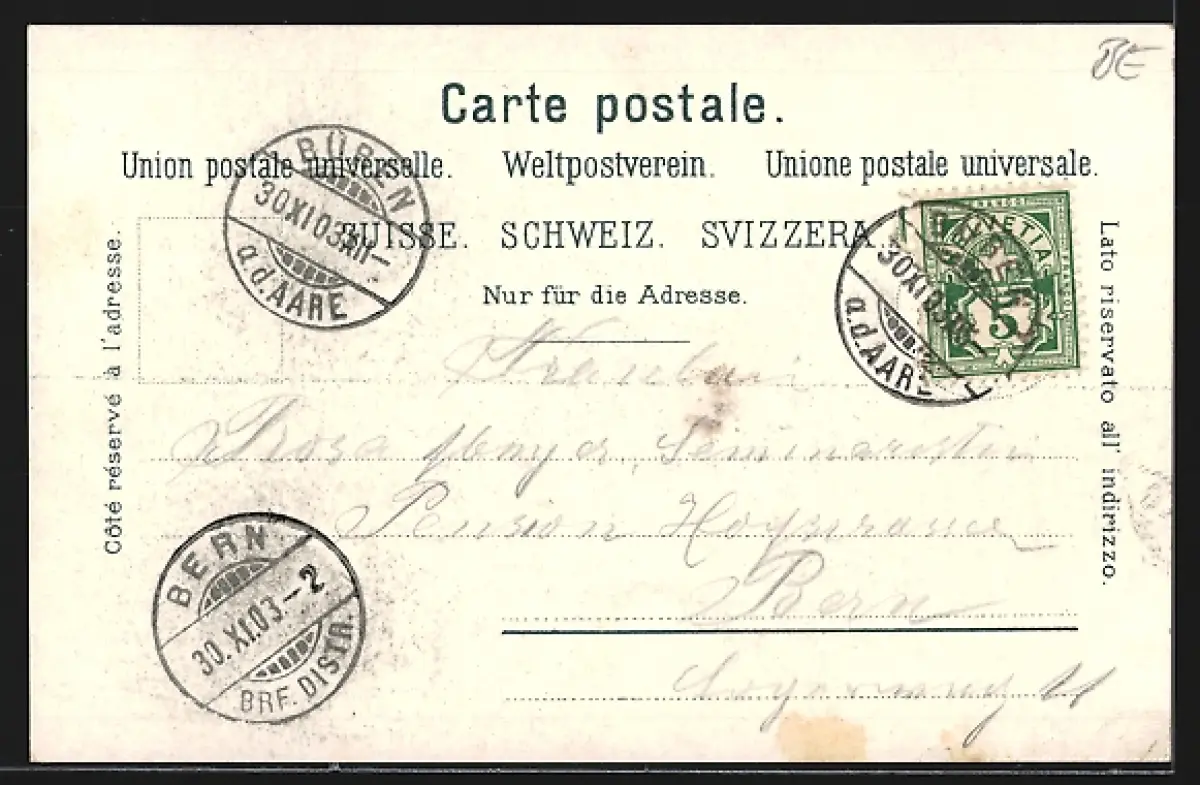 BE
Carte postale.
Union postale universelle. Weltpostverein. Unione postale universale.
SUISSE. SCHWEIZ. SVIZZERA.
Nur für die Adresse.
Côté réservé à l'adresse.
Lato riservato all' indirizzo.
BÜREN
30 XI 03 XII–
a.d. AARE
HELVETIA
FRANCO
5
30 XI 03
a.d. AARE
BERN
30. XI. 03 – 2
BRF. DISTR.
Fräulein
Rosa Seminaristin
Pension
Bern